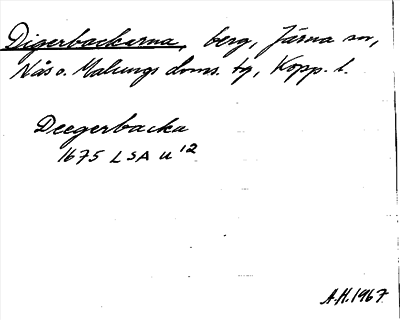 Digerbackarna, berg, Järna sn,
Nås o. Malungs doms. tg, Kopp. l.
Deegerbacka
1675 LSA U 12
A.H. 1967